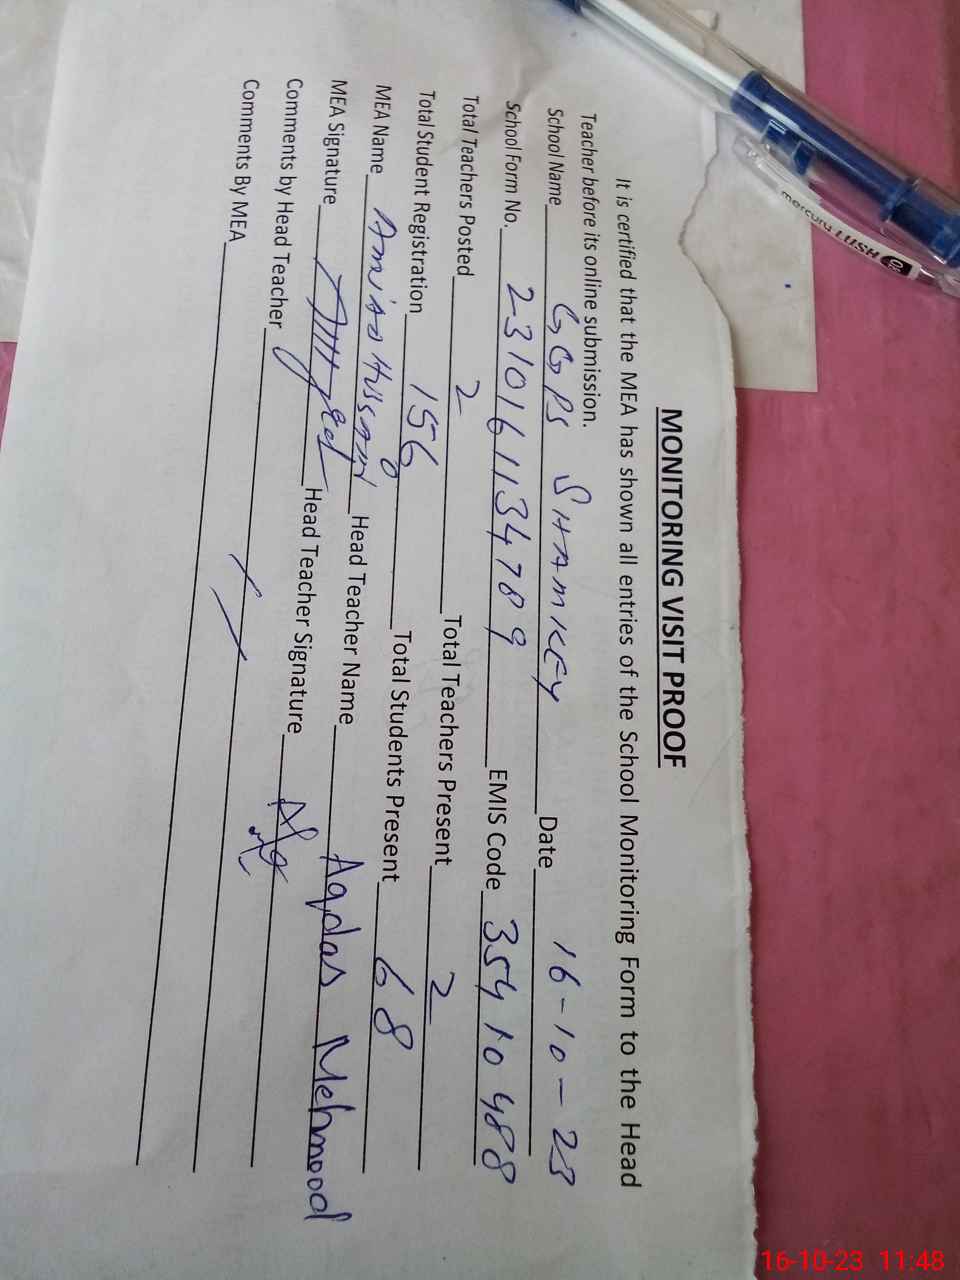 MONITORING VISIT PROOF
It is certified that the MEA has shown all entries of the School Monitoring Form to the Head
Teacher before its online submission.
School Name GGPS SHAMKEY Date 16-10-23
School Form No. 2310161134789 EMIS Code 35410488
Total Teachers Posted 2 Total Teachers Present 2
Total Student Registration 156 Total Students Present 68
MEA Name Hussain Head Teacher Name Aqdas Mehmood
MEA Signature Head Teacher Signature
Comments by Head Teacher
Comments By MEA
mercury LUSH
16-10-23 11:48